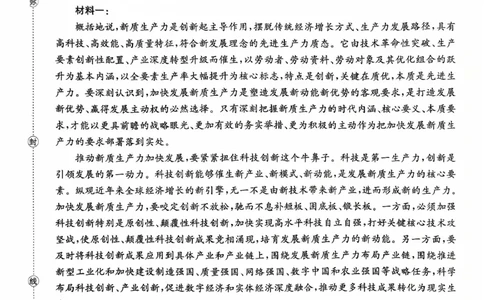 材料一：
概括地说，新质生产力是创新起主导作用，摆脱传统经济增长方式、生产力发展路径，具有
高科技、高效能、高质量特征，符合新发展理念的先进生产力质态。它由技术革命性突破、生产
要素创新性配置、产业深度转型升级而催生，以劳动者、劳动资料、劳动对象及其优化组合的跃
升为基本内涵，以全要素生产率大幅提升为核心标志，特点是创新，关键在质优，本质是先进生
产力。要深刻认识到，加快发展新质生产力是塑造发展新动能新优势的客观要求，是打造发展
新优势、赢得发展主动权的必然选择。只有深刻把握新质生产力的时代内涵、核心要义、本质要
求，才能以更具前瞻的战略眼光、更加有效的务实举措、更为积极的主动作为把加快发展新质生
产力的要求部署落到实处。
推动新质生产力加快发展，要紧紧扭住科技创新这个牛鼻子。科技是第一生产力，创新是
引领发展的第一动力。科技创新能够催生新产业、新模式、新动能，是发展新质生产力的核心要
素。纵观近年来全球经济增长的新引擎，无一不是由新技术带来新产业，进而形成新的生产力。
加快发展新质生产力，要咬定创新不放松，驰而不息补短板、固底板、锻长板。一方面，必须加强
科技创新特别是原创性、颠覆性科技创新，加快实现高水平科技自立自强，打好关键核心技术攻
坚战，使原创性、颠覆性科技创新成果竞相涌现，培育发展新质生产力的新动能。另一方面，要
及时将科技创新成果应用到具体产业和产业链上，围绕发展新质生产力布局产业链，围绕推进
新型工业化和加快建设制造强国、质量强国、网络强国、数字中国和农业强国等战略任务，科学
布局科技创新、产业创新，促进数字经济和实体经济深度融合，推动更多科技成果转化为现实生
封
线